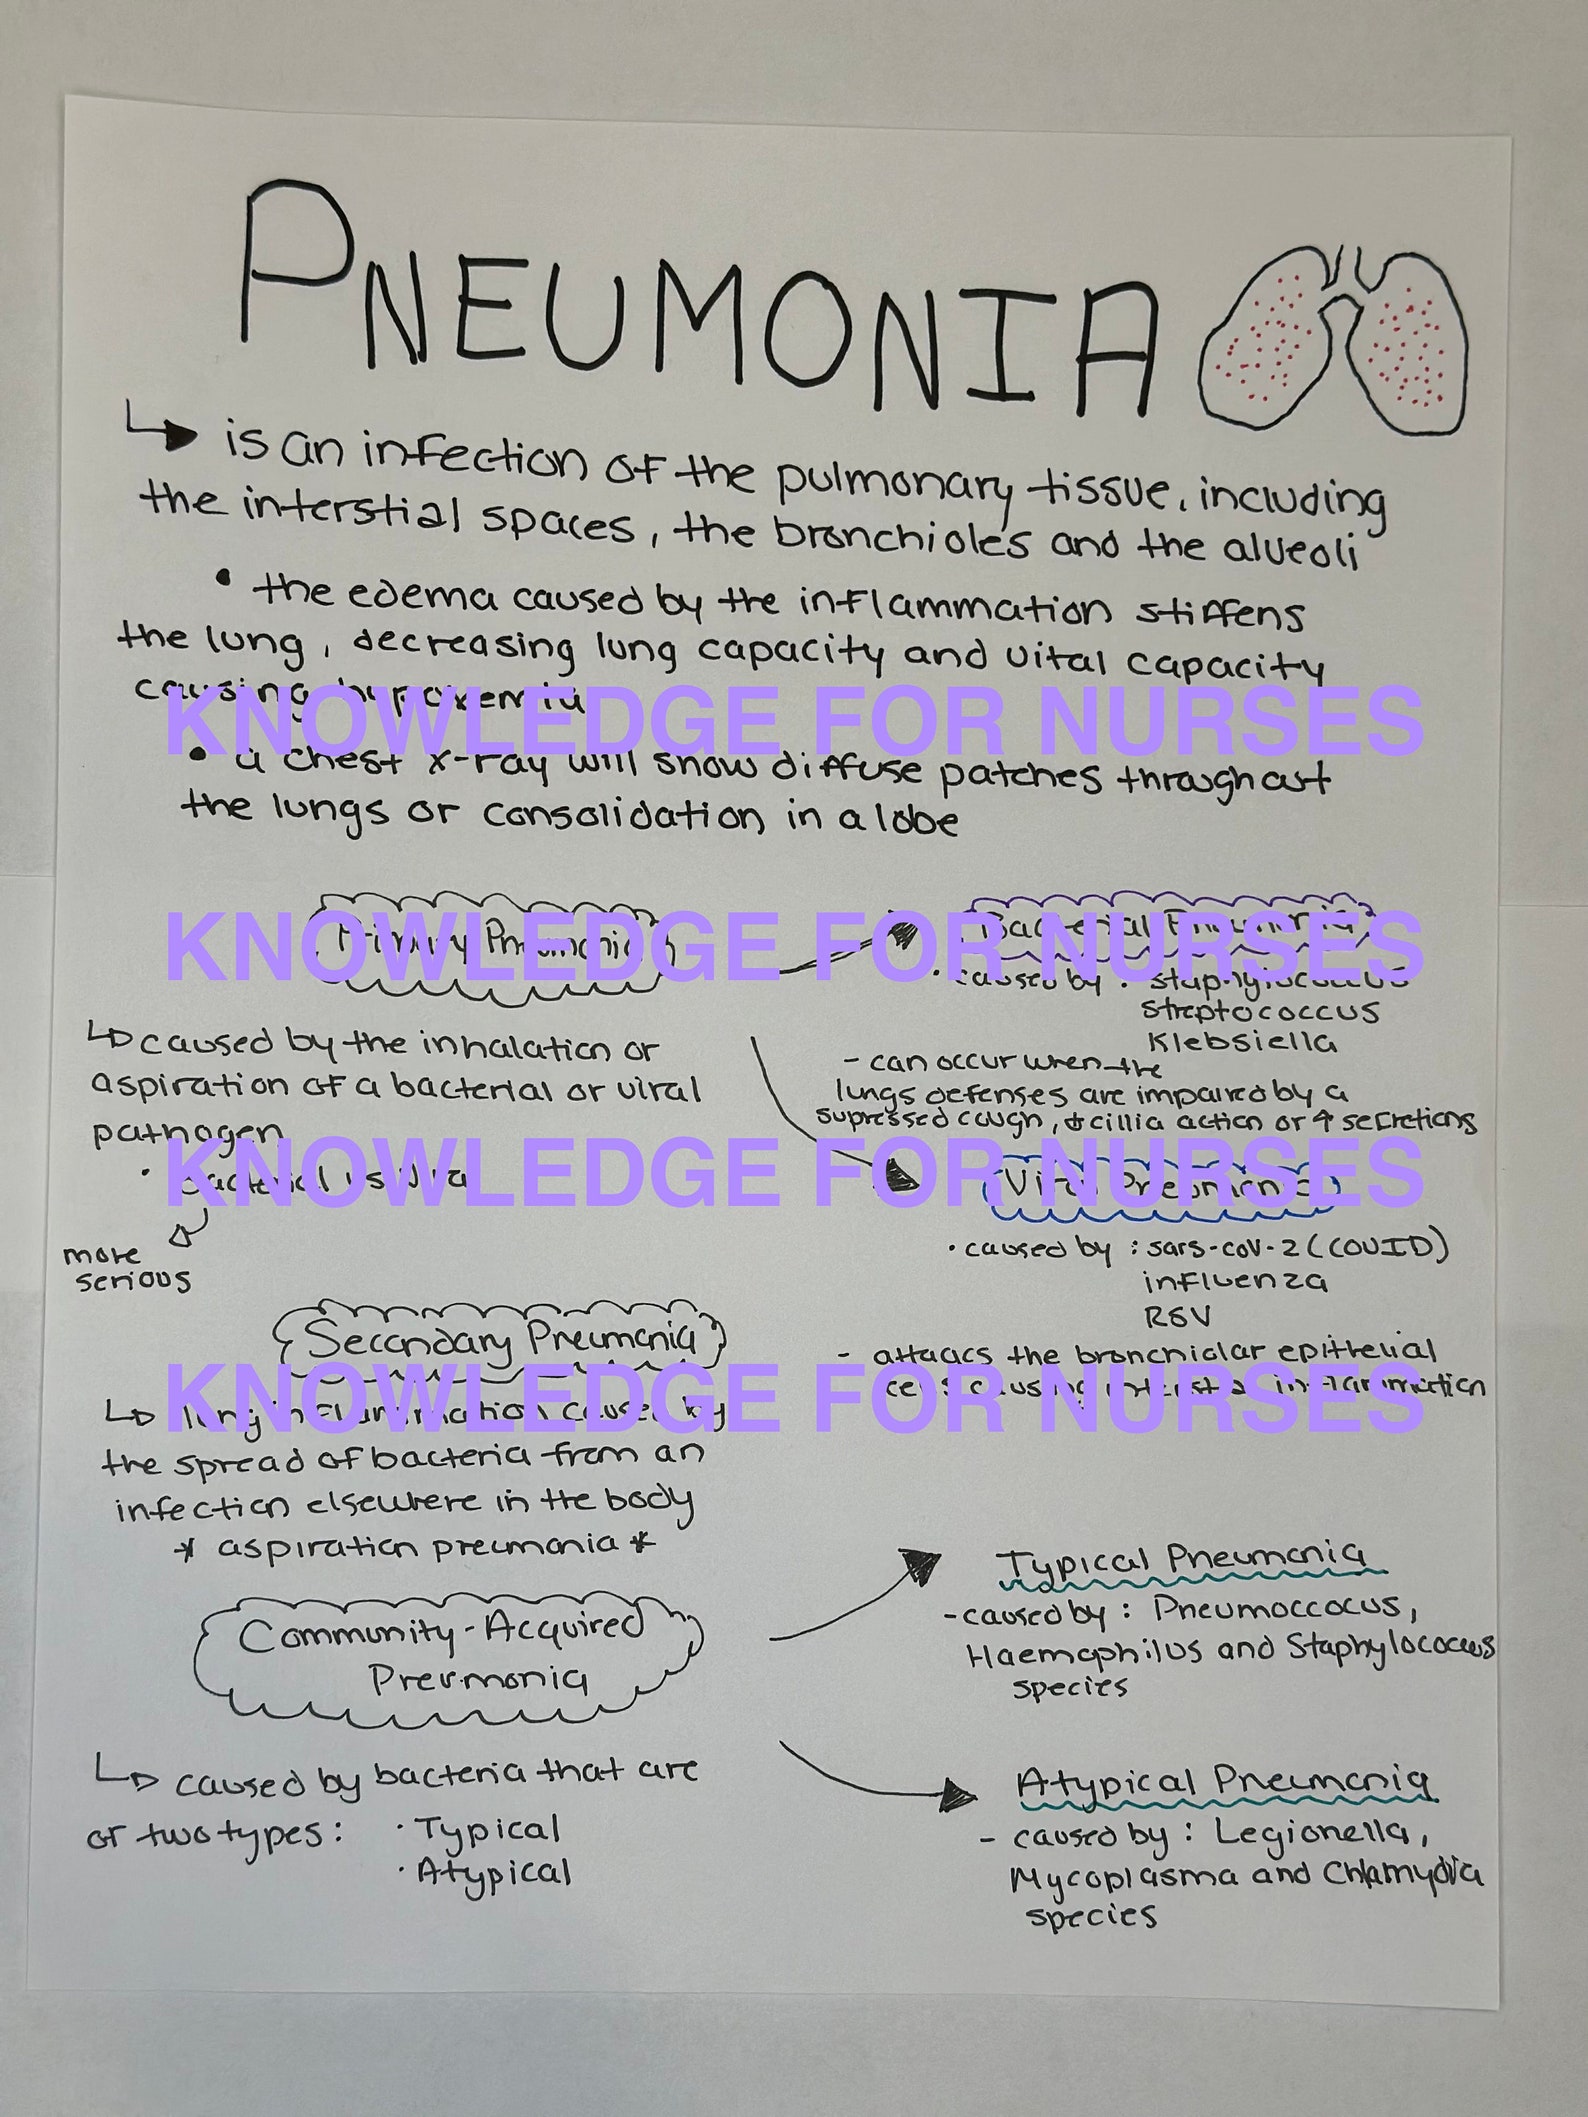 PNEUMONIA
is an infection of the pulmonary tissue, including
the interstial spaces, the bronchioles and the alveoli
• the edema caused by the inflammation stiffens
the lung, decreasing lung capacity and vital capacity
causing hypoxemia
KNOWLEDGE FOR NURSES
• a chest x-ray will show diffuse patches throughout
the lungs or consolidation in a lobe
KNOWLEDGE FOR NURSES
Primary Pneumonia
caused by the inhalation or
aspiration of a bacterial or viral
pathogen
• Bacterial vs Viral
more
serious
Bacterial Pneumonia
• caused by : staphylococcus
streptococcus
Klebsiella
- can occur when the
lungs defenses are impaired by a
supressed cough, ↓ cillia action or ↑ secretions
KNOWLEDGE FOR NURSES
Viral Pneumonia
• caused by : sars-coV-2 (COVID)
influenza
RSV
- attacks the bronchiolar epithelial
cells causing interstial inflammation
Secondary Pneumonia
KNOWLEDGE FOR NURSES
lung inflammation caused by
the spread of bacteria from an
infection elsewhere in the body
* aspiration pneumonia *
Community-Acquired
Pneumonia
caused by bacteria that are
of two types: • Typical
• Atypical
Typical Pneumonia
- caused by : Pneumoccocus,
Haemophilus and Staphylococcus
species
Atypical Pneumonia
- caused by : Legionella,
Mycoplasma and Chlamydia
species